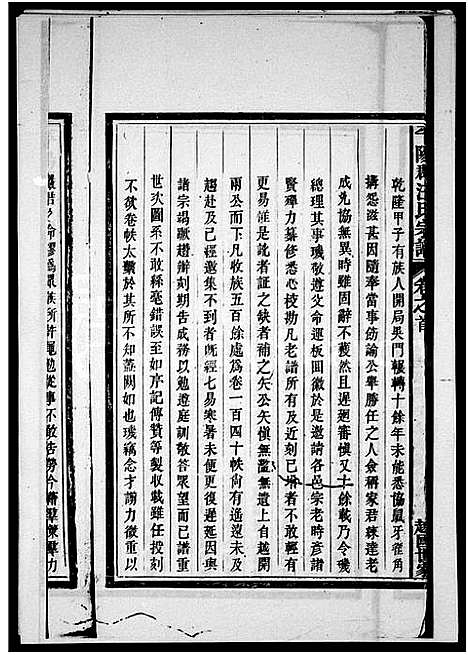 乾隆甲子有族人開局吳門輾轉十餘年未能悉協鼠牙雀角
搆怨滋甚因隨奉當事飭諭公舉勝任之人僉稱家君練達老
成允協無異時雖固辭不獲然且遲廻審慎又十餘載乃令璣
總理其事璣敬遵父命運板回徽於是邀請各邑宗老時彥諸
賢殫力纂修悉心校勘凡老譜所有及近刻已增者不敢輕有
更易雖是訛者証之缺者補之矢公矢慎無濫無遺上自越開
兩公而下凡收族五百餘處為卷一百四十帙尚有遙遠未及
趨赴及已經邀集不到者旣經七易寒暑未便更復遲延因與
諸宗謁歙趲辦刻期告成務以勉遵庭訓敬答眾望而已譜重
世次圖系不敢絲毫錯誤至如序記傳贊等製収載雖任投刻
不致卷帙太繁於其所不知蓋闕如也璣竊念才謭力微重以
命謬為眾族所許黽勉從事不敢告勞今藉羣策羣力
汪氏宗譜
卷之首